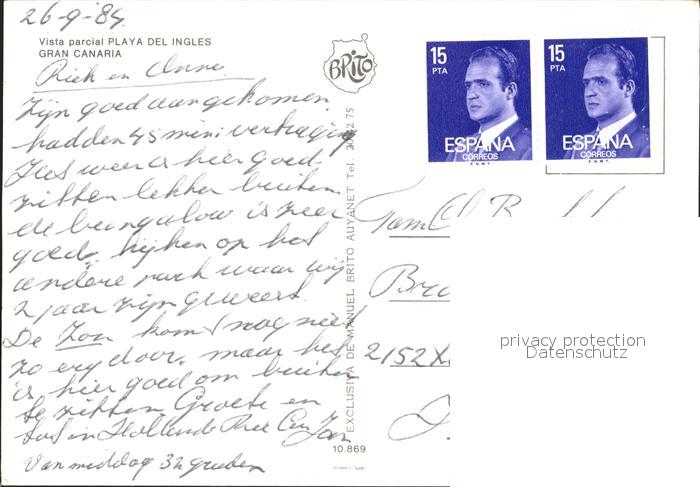 26-9-84
Vista parcial PLAYA DEL INGLES
GRAN CANARIA
Riek en Anne
Zijn goed aangekomen
hadden 45 min: vertraging
Het weer is hier goed
zitten lekker buiten
de bungalow is zeer
goed, kijken op het
andere park waar wij
2 jaar zijn geweest.
De Zon komt nog niet
zo erg door, maar het
is hier goed om buiten
te zitten Groete en
tot in Holland Jan
Van middag 32 graden
BRITO
EXCLUSIVA DE MANUEL BRITO AUYANET Tel.
10.869
15
PTA
ESPAÑA
CORREOS
F.N.M.T.
15
PTA
ESPAÑA
CORREOS
F.N.M.T.
Fam
2152
privacy protection
Datenschutz